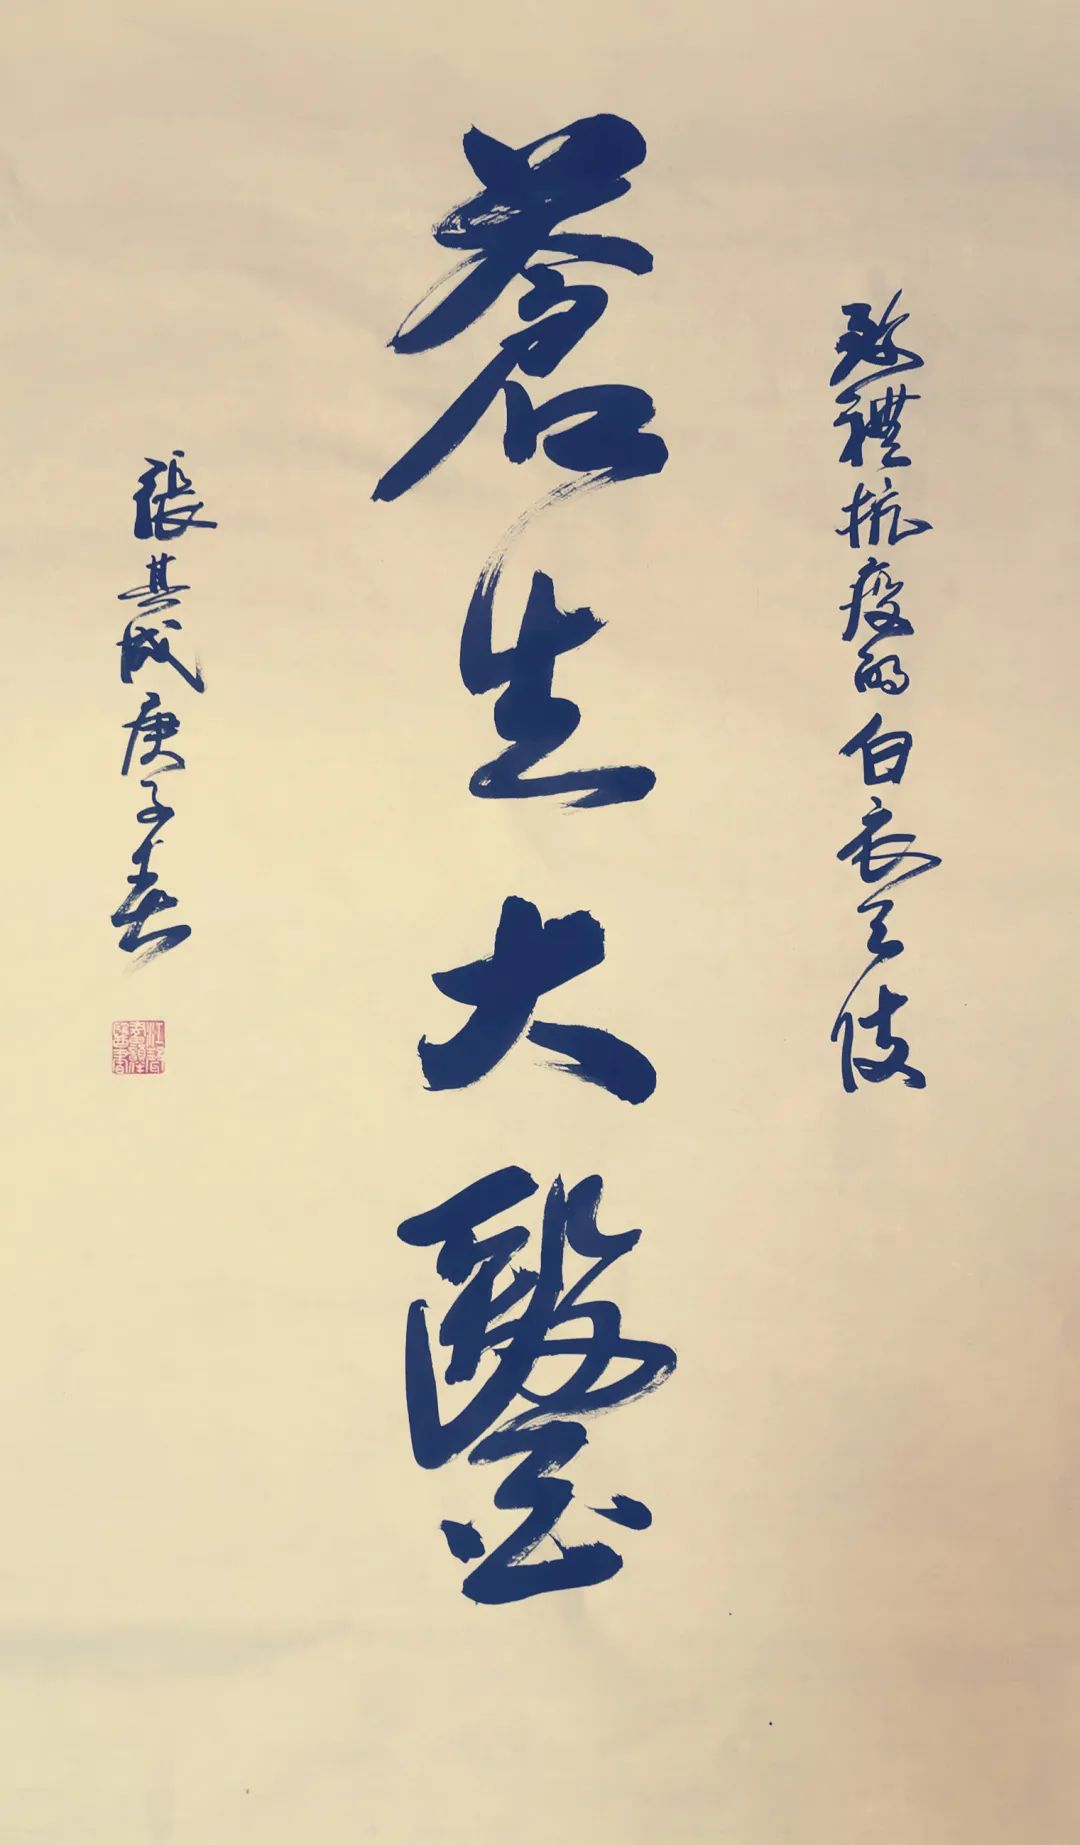 致禮抗疫的白衣天使
蒼生大毉
張其成庚子春